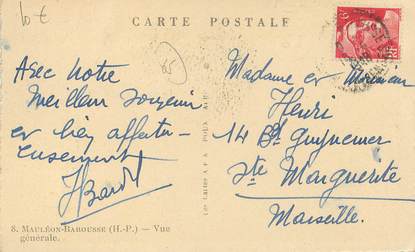 10 €
CARTE POSTALE
Avec Notre
meilleur souvenir
et bien affectu-
eusement
Madame et Monsieur
Henri
14 Bd Guynemer
Ste Marguerite
Marseille.
8. MAULÉON-BAROUSSE (H.-P.) — Vue
générale.
RF